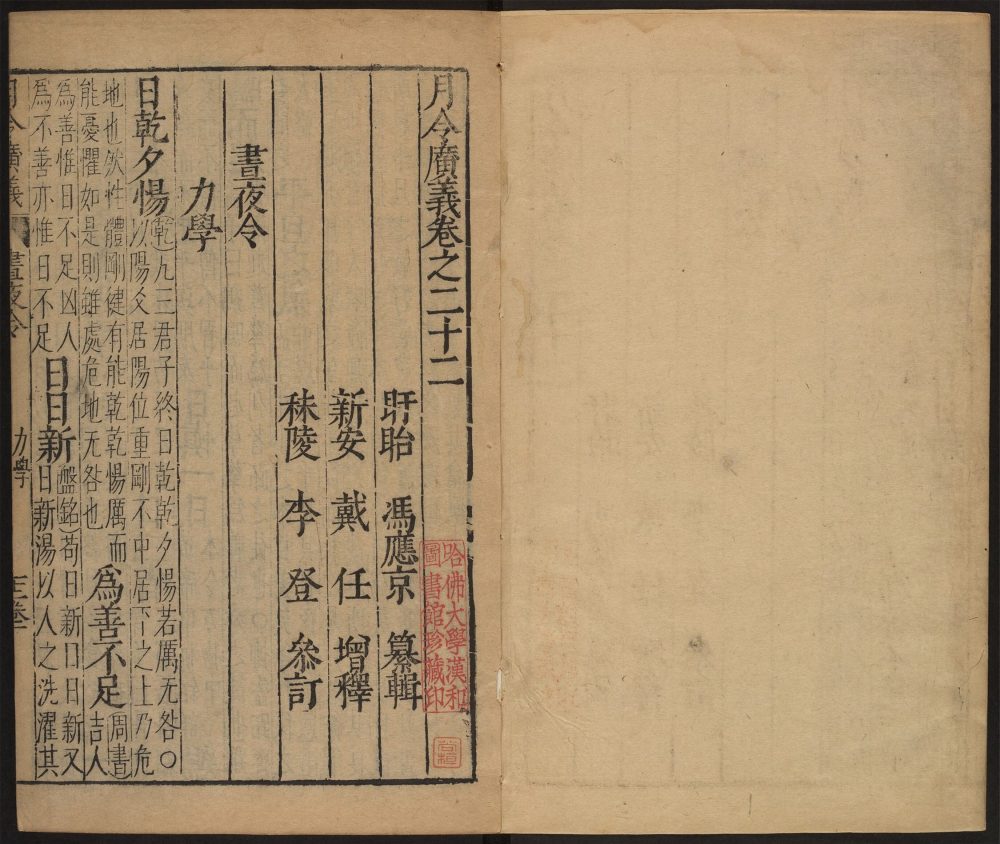 月令廣義卷之二十二
盱眙 馮應京 纂輯
新安 戴任 增釋
秣陵 李登 叅訂
哈佛大學漢和
圖書館珍藏印
晝夜令
力學
日乾夕惕
乾九三君子終日乾乾夕惕若厲无咎〇
以陽爻居陽位重剛不中居下之上乃危
地也然性體剛健有能乾乾惕厲而
能憂懼如是則雖處危地无咎也
為善不足
周書
吉人
為善惟日不足凶人
為不善亦惟日不足
日日新
盤銘苟日新日日新又
日新湯以人之洗濯其
月令廣義
晝夜令
力學